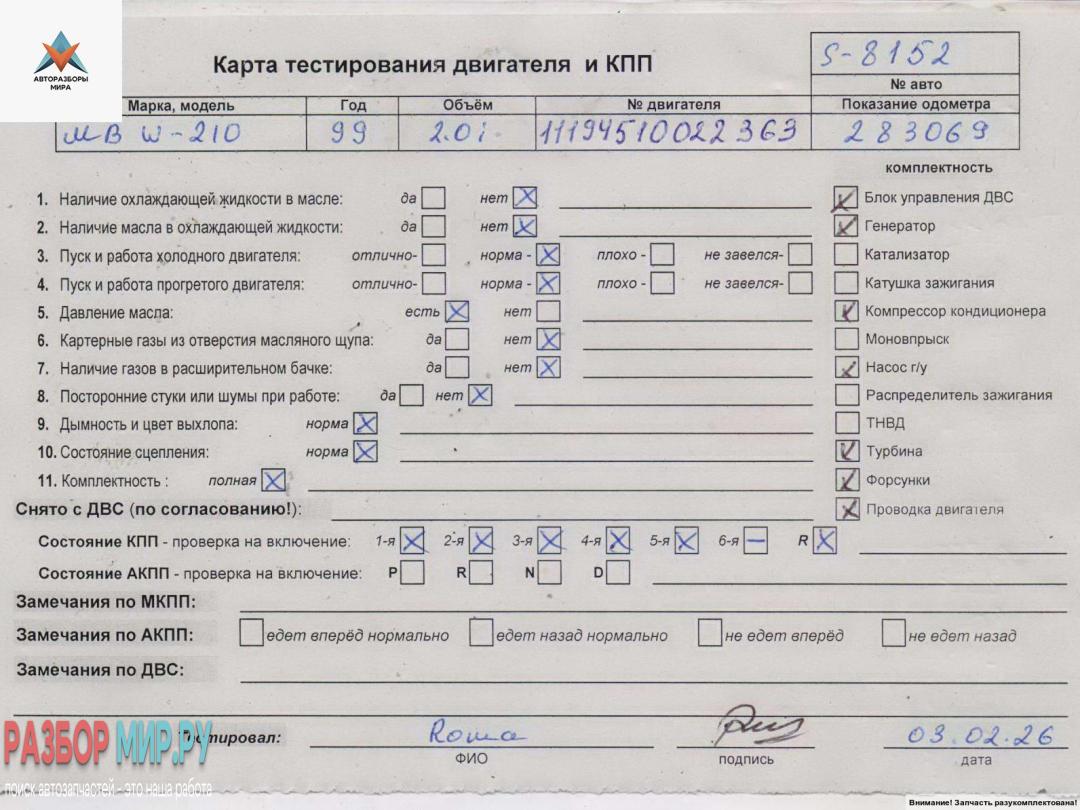 АВТОРАЗБОРЫ
МИРА
Карта тестирования двигателя и КПП
S-8152
№ авто
Марка, модель Год Объём № двигателя Показание одометра
МВ W-210 99 2.0i 11194510022363 283069
комплектность
1. Наличие охлаждающей жидкости в масле: да нет Блок управления ДВС
2. Наличие масла в охлаждающей жидкости: да нет Генератор
3. Пуск и работа холодного двигателя: отлично- норма - плохо - не завелся- Катализатор
4. Пуск и работа прогретого двигателя: отлично- норма - плохо - не завелся- Катушка зажигания
5. Давление масла: есть нет Компрессор кондиционера
6. Картерные газы из отверстия масляного щупа: да нет Моновпрыск
7. Наличие газов в расширительном бачке: да нет Насос г/у
8. Посторонние стуки или шумы при работе: да нет Распределитель зажигания
9. Дымность и цвет выхлопа: норма ТНВД
10. Состояние сцепления: норма Турбина
11. Комплектность : полная Форсунки
Снято с ДВС (по согласованию!): Проводка двигателя
Состояние КПП - проверка на включение: 1-я 2-я 3-я 4-я 5-я 6-я R
Состояние АКПП - проверка на включение: P R N D
Замечания по МКПП:
Замечания по АКПП: едет вперёд нормально едет назад нормально не едет вперёд не едет назад
Замечания по ДВС:
РАЗБОР МИР.РУ
Тестировал: Roma 03.02.26
ФИО подпись дата
поиск автозапчастей - это наша работа
Внимание! Запчасть разукомплектована!